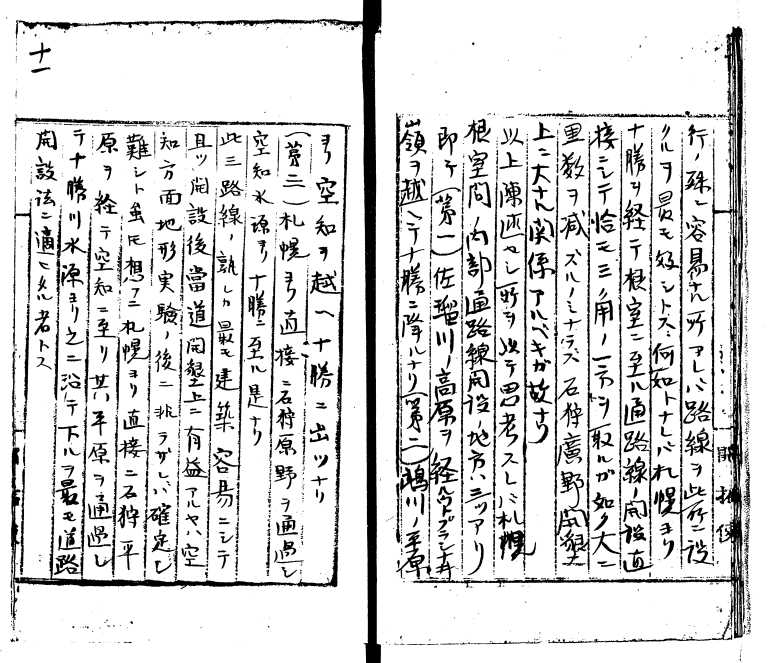 行ノ殊ニ容易ナル所アレバ路線ヲ此所ニ設
クルヲ最モ好シトス何如トナレバ札幌ヨリ
十勝ヲ経テ根室ニ至ル通路線ノ開設直
接ニシテ恰モ三角ノ一ヲ取ルガ如ク大ニ
里数ヲ减ズルノミナラズ石狩廣野開墾
上ニ大ナル関係アルベキガ故ナリ
以上陳述セシ所ヲ以テ思考スレバ札幌
根室間ノ内部通路線開設ノ地方ハ三ツアリ
即チ(第一)佐瑠川ノ高原ヲ経
嶺ヲ越ヘテ十勝ニ降ルナリ(第二)鵡川ノ平原
ヨリ空知ヲ越ヘ十勝ニ出ツナリ
(第三)札幌ヨリ直接ニ石狩原野ヲ通過シ
空知水源ヨリ十勝ニ至ル是ナリ
此三路線ノ孰レカ最モ建築容易ニシテ
且ツ開設後當道開墾上ニ有益アルヤハ空
知方面地形実験ノ後ニ非ラザレバ確定シ
難シト虽モ想フニ札幌ヨリ直接ニ石狩平
原ヲ経テ空知ニ至リ其平原ヲ通過シ
テ十勝川水源ヨリ之ニ沿テ下ルヲ最モ道路
開設法ニ適セル者トス
十一
開拓使